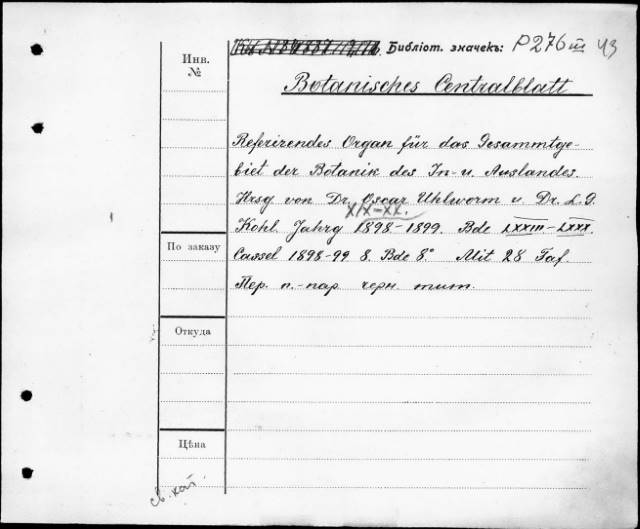 Библіот. значекъ: P276 III 43
Инв.
№
Botanisches Centralblatt
Referirendes Organ für das Gesammtge-
biet der Botanik des In- u. Auslandes.
Hrsg von Dr. Oscar Uhlworm u Dr. L. G.
XIX-XX.
Kohl. Jahrg 1898-1899. Bde LXXIII-LXXX.
По заказу
Cassel 1898-99 8. Bde 8°. Mit 28 Taf.
Пер. п.-пар черн. тит.
Откуда
Цѣна
св. кат.